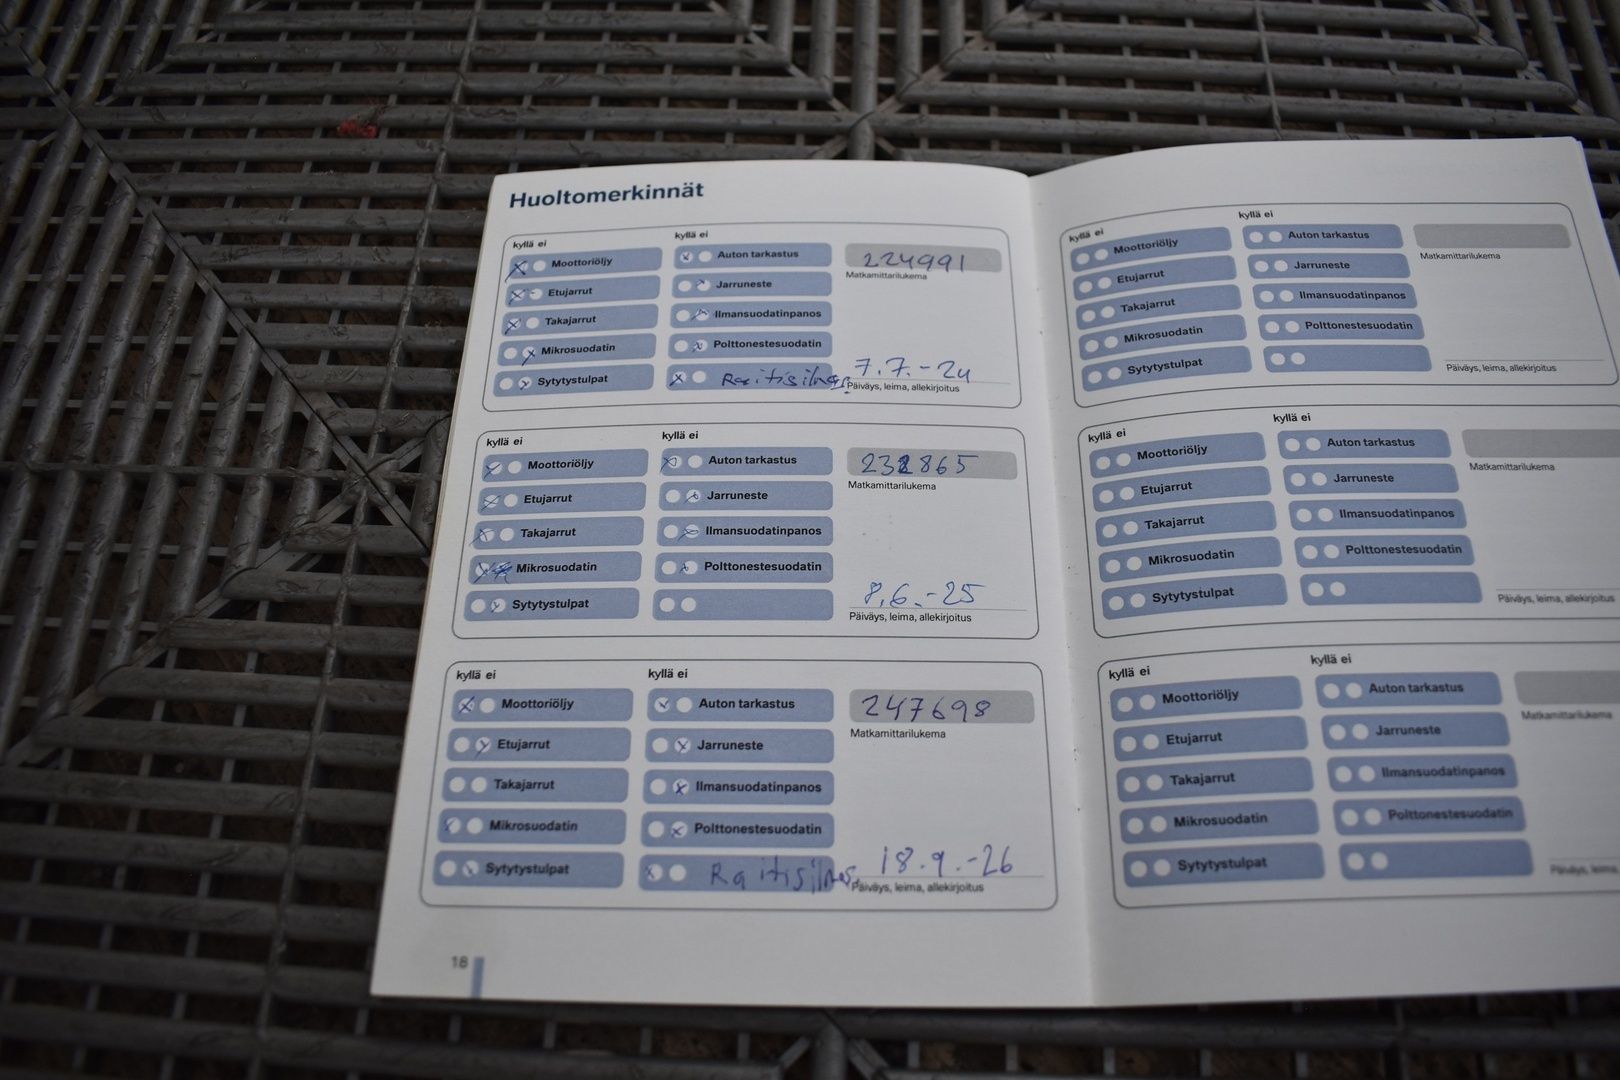 Huoltomerkinnät
kyllä ei
Moottoriöljy
Etujarrut
Takajarrut
Mikrosuodatin
Sytytystulpat
kyllä ei
Auton tarkastus
Jarruneste
Ilmansuodatinpanos
Polttonestesuodatin
Raitisilmas.
224991
Matkamittarilukema
7.7.-24
Päiväys, leima, allekirjoitus
kyllä ei
Moottoriöljy
Etujarrut
Takajarrut
Mikrosuodatin
Sytytystulpat
kyllä ei
Auton tarkastus
Jarruneste
Ilmansuodatinpanos
Polttonestesuodatin
Matkamittarilukema
8.6.-25
Päiväys, leima, allekirjoitus
kyllä ei
Moottoriöljy
Etujarrut
Takajarrut
Mikrosuodatin
Sytytystulpat
kyllä ei
Auton tarkastus
Jarruneste
Ilmansuodatinpanos
Polttonestesuodatin
Raitisilmas.
247698
Matkamittarilukema
18.9.-26
Päiväys, leima, allekirjoitus
18
kyllä ei
Moottoriöljy
Etujarrut
Takajarrut
Mikrosuodatin
Sytytystulpat
kyllä ei
Auton tarkastus
Jarruneste
Ilmansuodatinpanos
Polttonestesuodatin
Matkamittarilukema
Päiväys, leima, allekirjoitus
kyllä ei
Moottoriöljy
Etujarrut
Takajarrut
Mikrosuodatin
Sytytystulpat
kyllä ei
Auton tarkastus
Jarruneste
Ilmansuodatinpanos
Polttonestesuodatin
Matkamittarilukema
Päiväys, leima, allekirjoitus
kyllä ei
Moottoriöljy
Etujarrut
Takajarrut
Mikrosuodatin
Sytytystulpat
kyllä ei
Auton tarkastus
Jarruneste
Ilmansuodatinpanos
Polttonestesuodatin
Matkamittarilukema
Päiväys, leima,